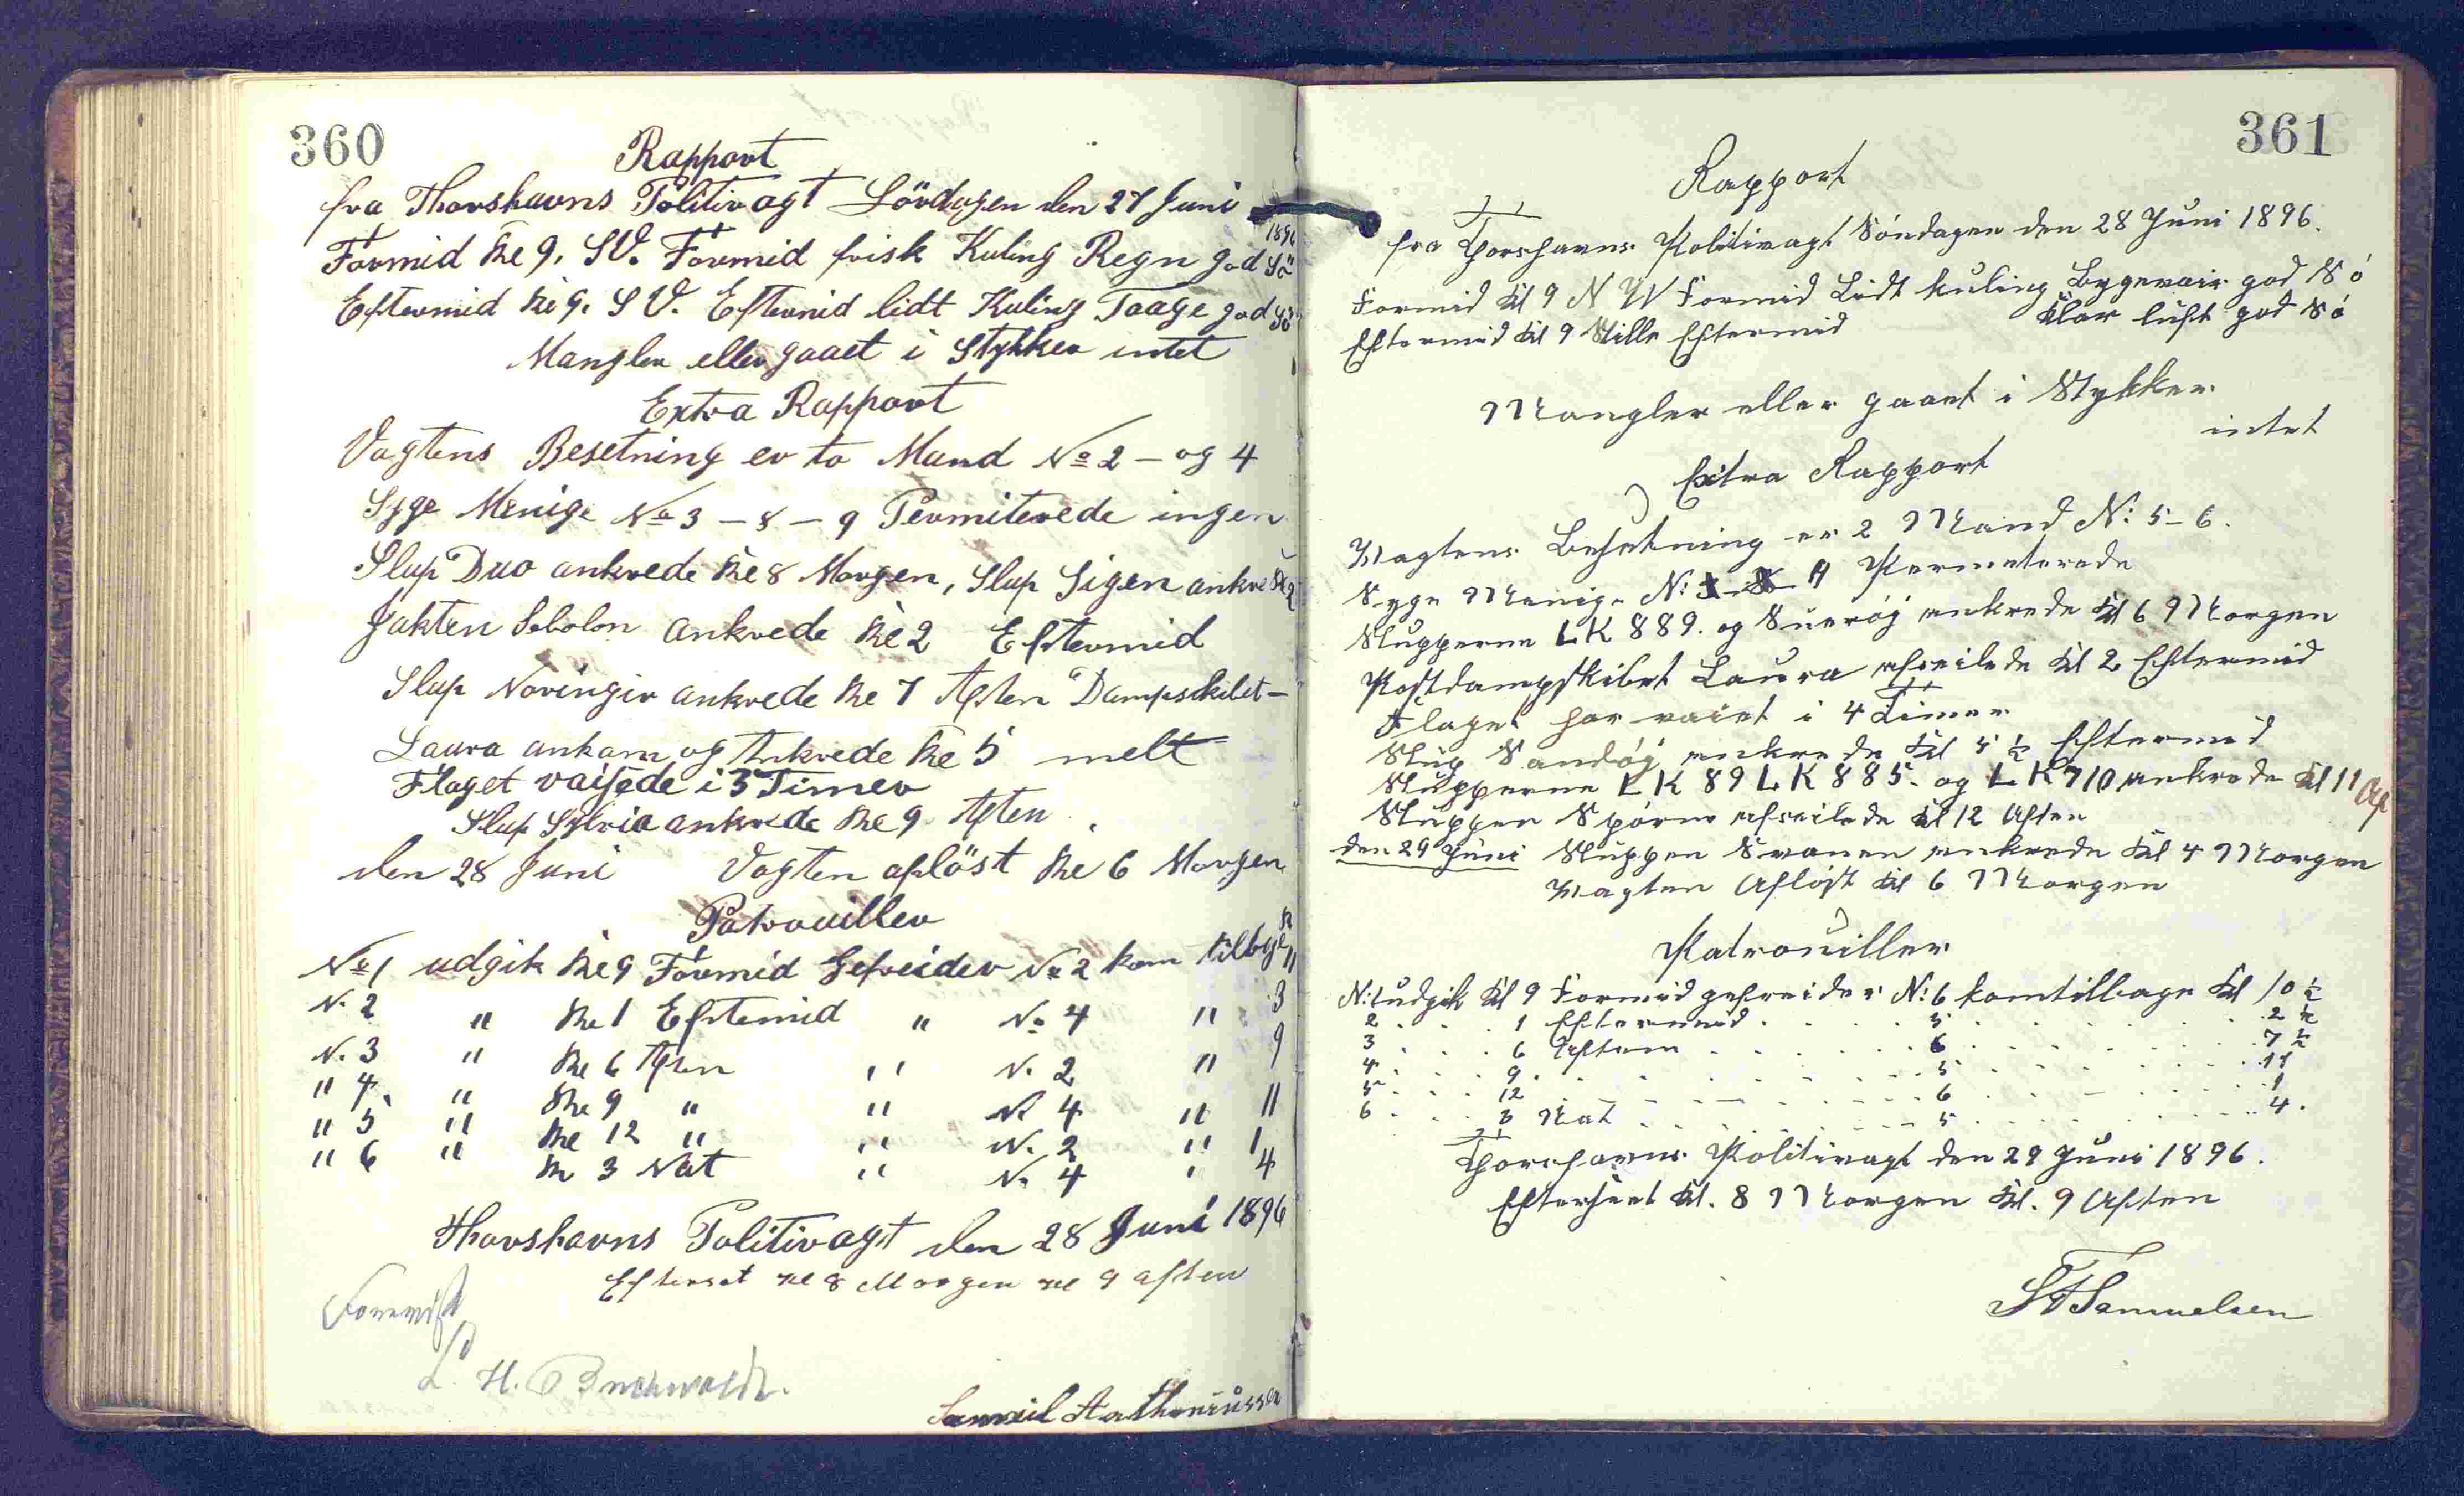 360
Rapport
fra Thorshavns Politivagt Lördagen den 27 Juni 1896
Formid Kl 9. SV. Formid frisk Kuling Regn god Sö
Eftermid Kl 9. SV. Eftermid lidt Kuling Taage god Sö
Mangler eller gaaet i Stykker intet
Extra Rapport
Vagtens Besetning er to Mand No 2 - og 4
Syge Menige No 3 - 8 - 9 Permiterede ingen
Slup Duo ankrede Kl 8 Morgen, Slup Sigen ankre Kl 2
Jakten ankrede Kl 2 Eftermid
Slup Noringir ankrede Kl 7 Aften Dampskibet -
Laura ankom og Ankrede Kl 5 melt
Flaget vaijede i 3 Timer
Slup Sylvia ankrede Kl 9 Aften
den 28 Juni Vagten aflöst Kl 6 Morgen
Patrouiller
No 1 udgik Kl 9 Formid Gefreider No 2 kom tilbge Kl 11
N. 2 " Kl 1 Eftermid " No 4 " 3
N. 3 " Kl 6 Aften " N. 2 " 9
" 4 " Kl 9 " " No 4 " 11
" 5 " Kl 12 " " N. 2 " 1
" 6 " Kl 3 Nat " N. 4 " 4
Thorshavns Politivagt den 28 Juni 1896
Efterset Kl 8 Morgen Kl 9 Aften
Forevist
L. H. Buchwaldt.
Samuil
361
Rapport
fra Thorshavns Politivagt Söndagen den 28 Juni 1896.
Formid Kl 9 N W Formid Lidt kuling Bygevair god Só
Eftermid Kl 9 Stille Eftermid Klar luft god Só
Mangler eller gaaet i Stykker
intet
Extra Rapport
Vagtens Besetning er 2 Mand N: 5-6.
Syge Menige N: Permeterede
Slupperne LK 889. og Suerój ankrede Kl 6 Morgen
Postdampskibet Laura afseilede Kl 2 Eftermid
Flaget har vaiet i 4 Timer
Slup Sandöj ankrede Kl 5 ½ Eftermid
Slupperne LK 89 LK 885. og LK 710 ankrede Kl 11 Af
Sluppen Spörne afseilede Kl 12 Aften
den 29 Juni Sluppen Svanen ankrede Kl 4 Morgen
Vagten Aflöst Kl 6 Morgen
Patrouiller
N: 1 udgik Kl 9 Formid gefreider N: 6 kom tilbage Kl 10 ½
2 . . . 1 Eftermid . . . . 5 . . . . 2 ½
3 . . . 6 Aften . . . . 6 . . . . 7 ½
4 . . . 9 . . . . 5 . . . . 11
5 . . . 12 . . . . 6 . . . . 1
6 . . . 3 Nat . . . . 5 . . . . 4.
Thorshavns Politivagt den 29 Juni 1896.
Efterseet Kl. 8 Morgen Kl. 9 Aften
Samuelsen